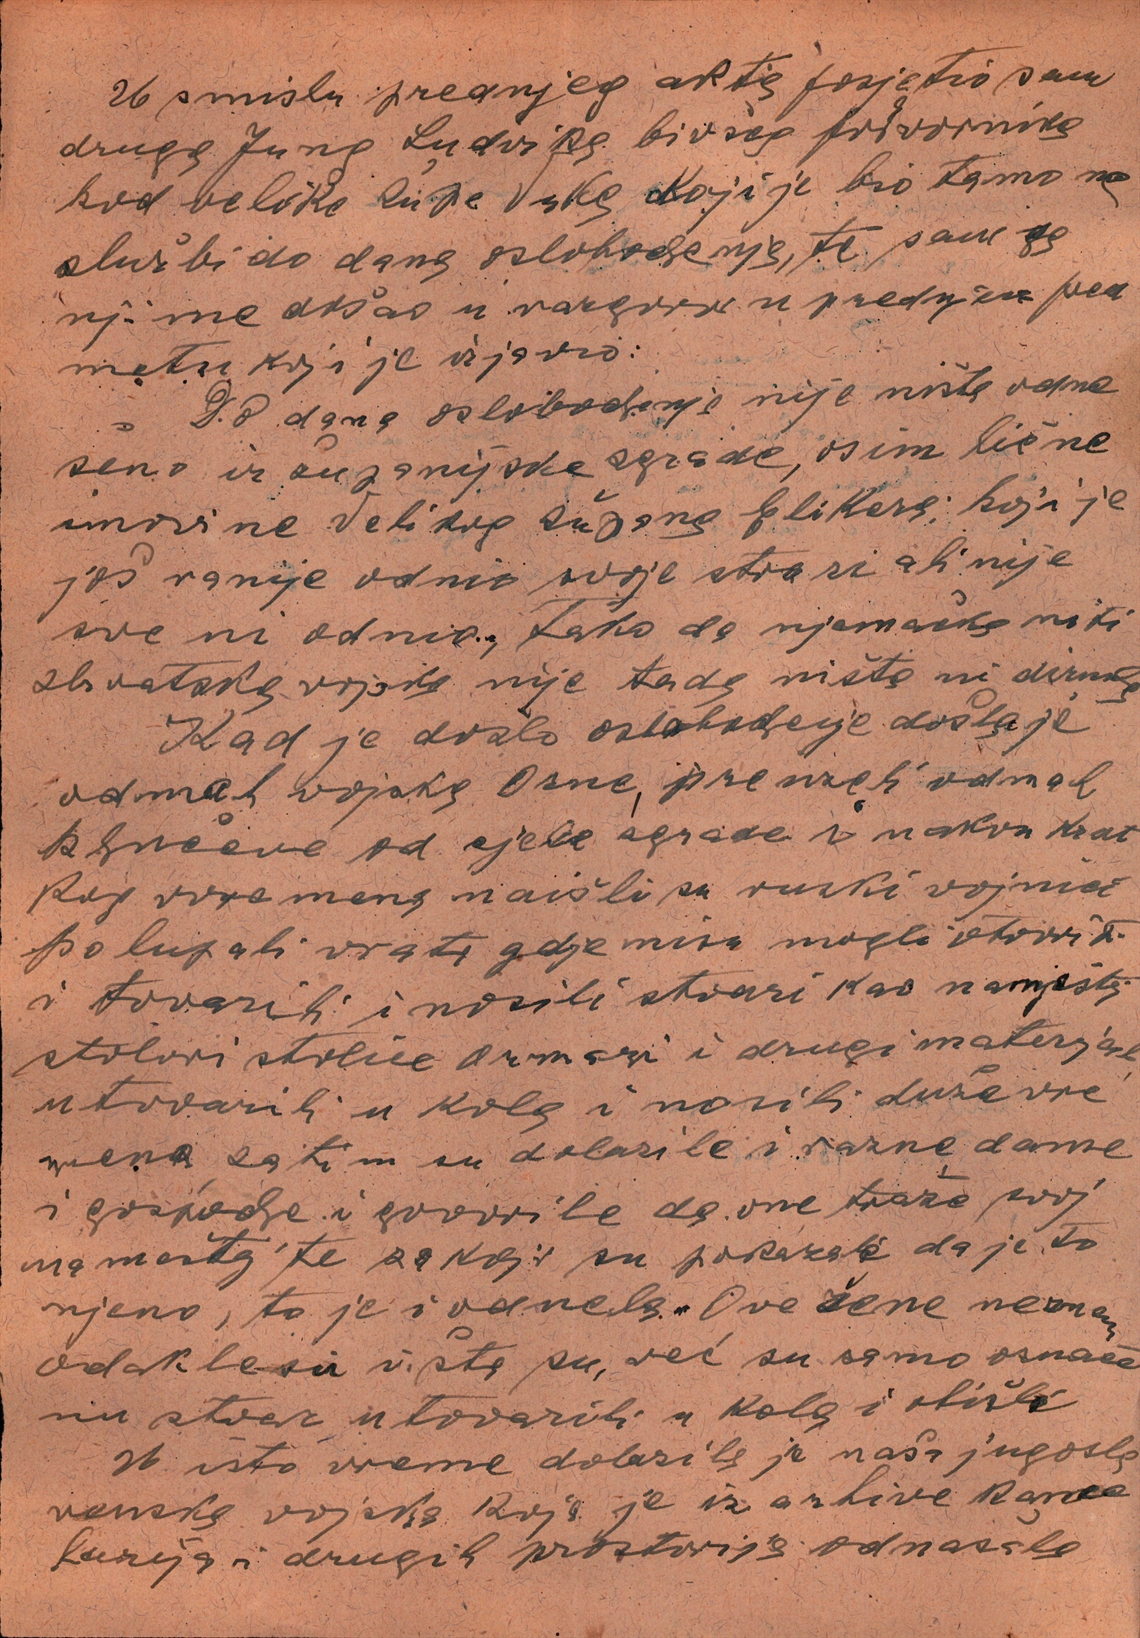 U smislu prednjeg akta posjetio sam
druga Jung Ludviga bivšeg potvornika
kod velike župe Vuka koji je bio tamo na
službi do dana oslobodjenja, te sam sa
njime došao u razgovor u prednjem pred
metu koji je izjavio:
„ Do dana oslobodjenja nije ništa odne
seno iz županijske zgrade, osim lične
imovine Velikog župana Elikera, koji je
još ranije odnio svoje stvari ali nije
sve ni odnio, tako da njemačka niti
hrvatska vojska nije tada ništa ni dirnula
Kad je došlo oslobodjenje došla je
odmah vojska Ozne, preuzeli odmah
ključeve od cjele zgrade i nakon krat
kog vremena naišli su ruski vojnici
polupali vrata gdje nisu mogli otvoriti
i tovarili i nosili stvari kao namješta
stolovi stolice ormari i drugi materijal
utovarili u kola i nosili duže vre
mena zatim su dolazile i razne dame
i gospodje i govorile da one traže svoj
namešta te za koji su pokazale da je to
njeno, to je i odnela. Ove žene neznam
odakle su i šta su, već su samo označe
nu stvar utovarili u kola i otišli
U isto vreme dolazila je naša jugosla
venska vojska koja je iz arhive kance
larija i drugih prostorija odnašala